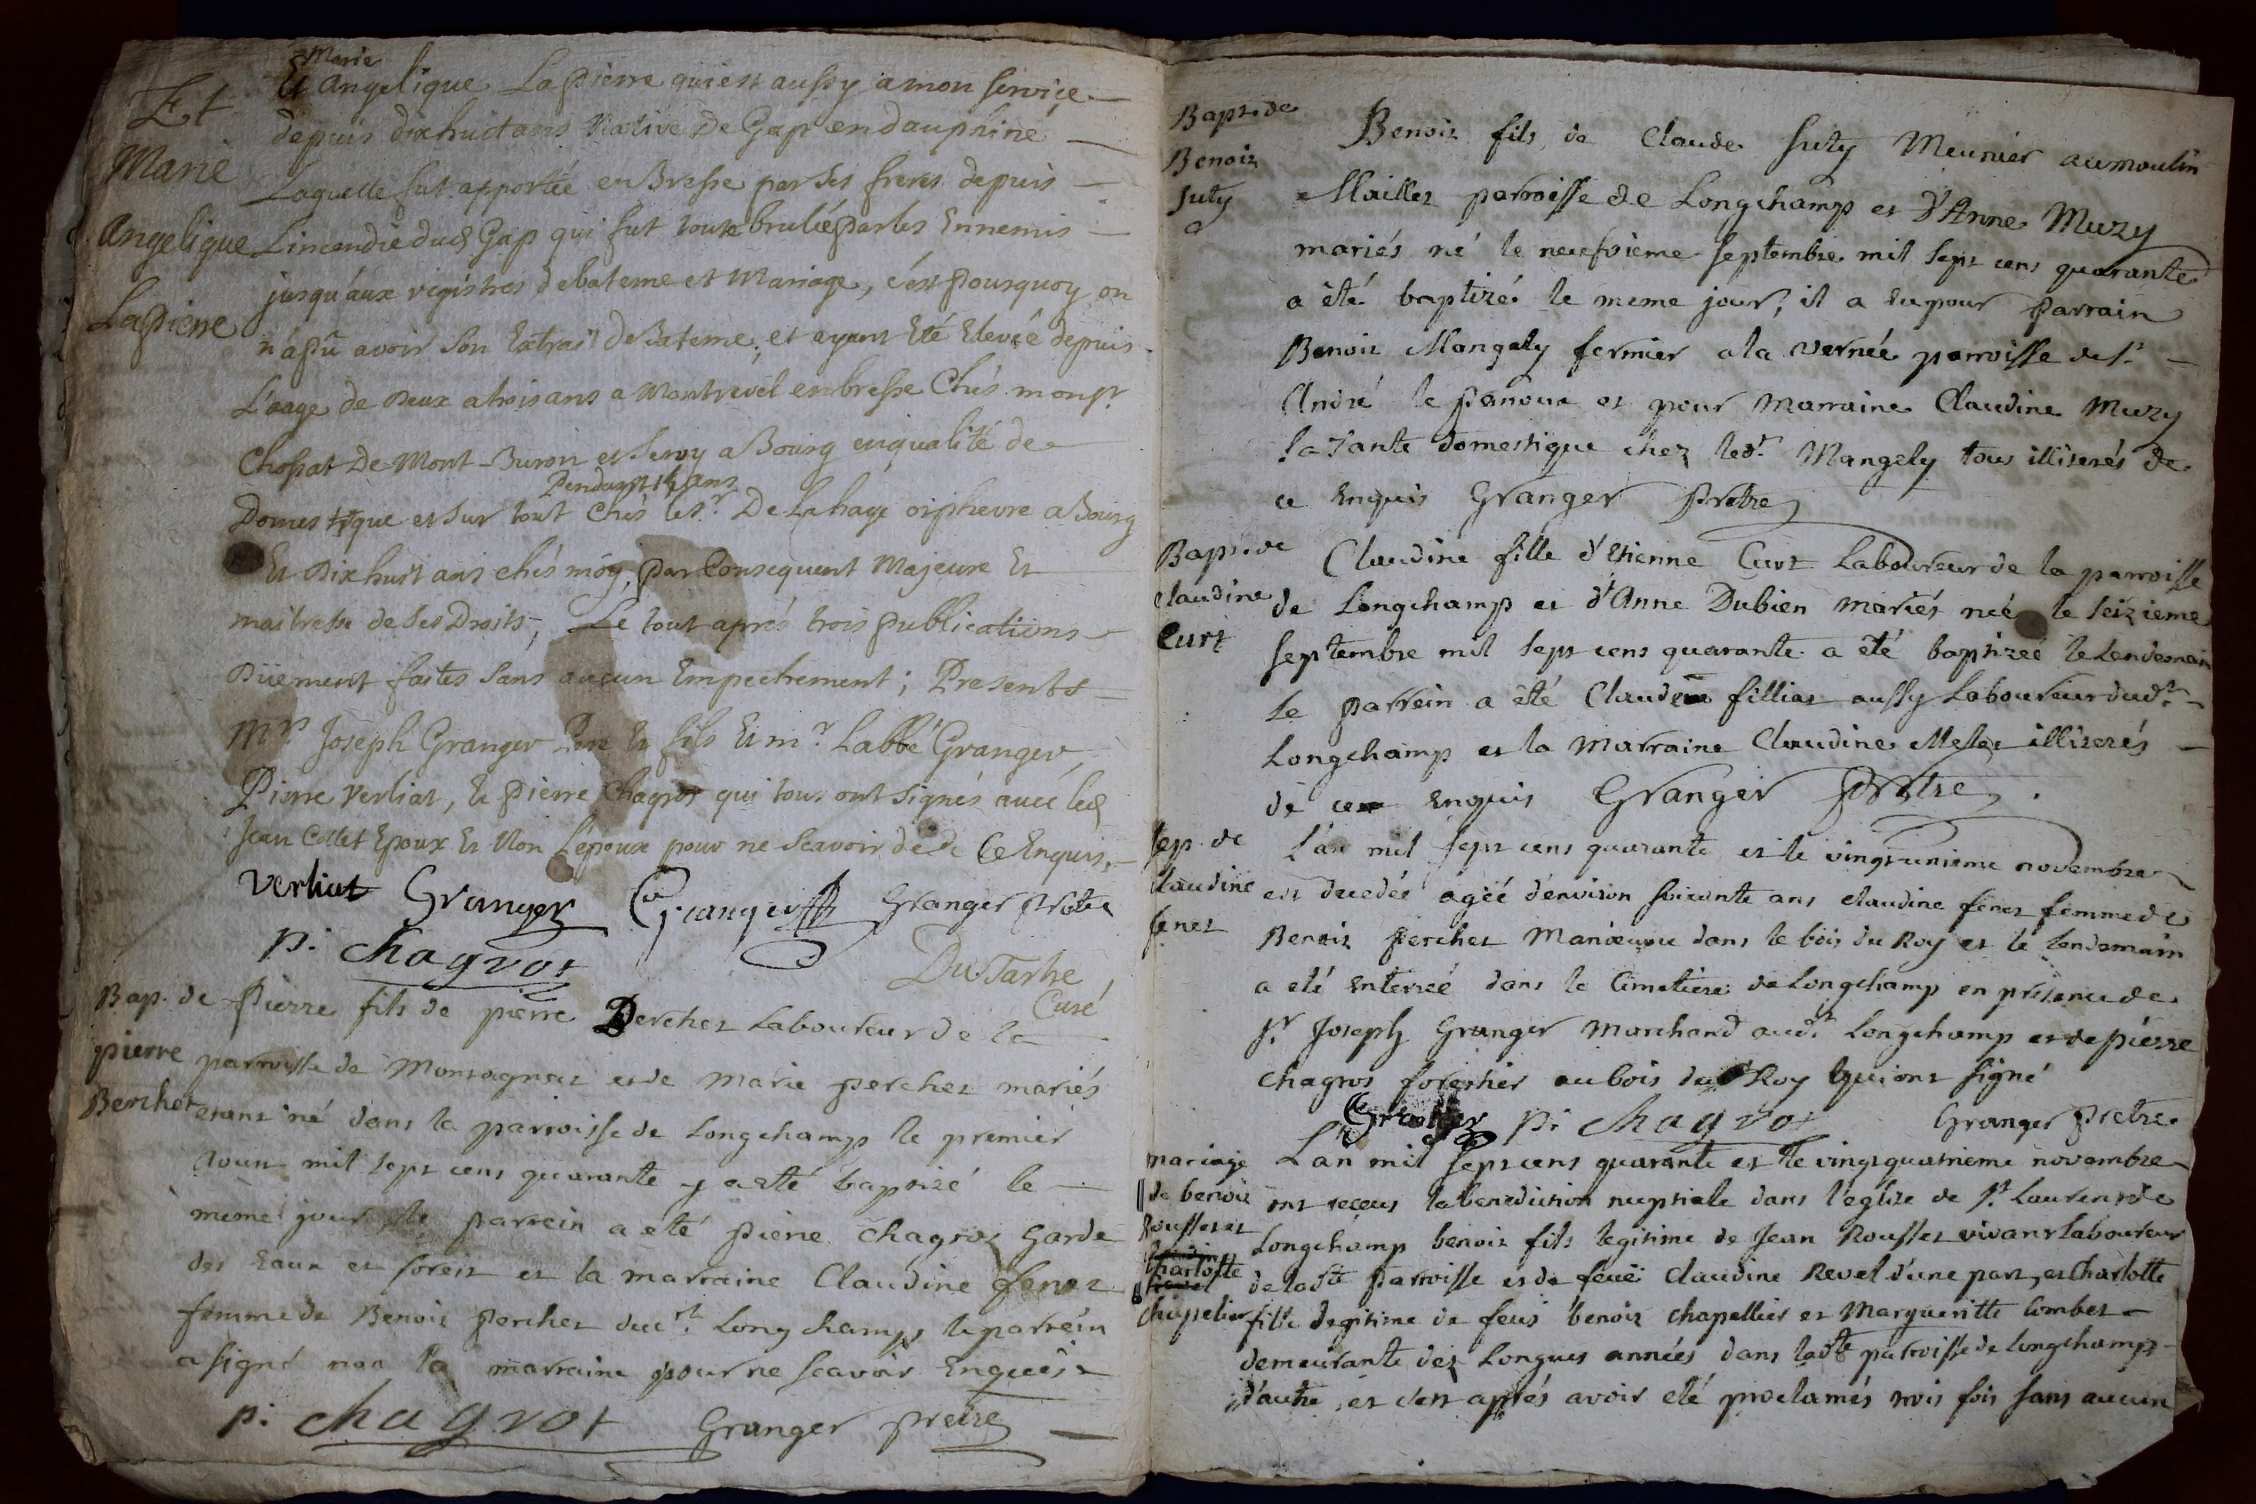 Et
Marie
Angelique
Lapierre
Marie
Et Angelique Lapierre qui est aussy a mon service
depuis dix huit ans Native De Gap en dauphiné
Laquelle fut apportée en Bresse par ses freres depuis
L'incendie dud Gap qui fut toute brulée par les Ennemis
jusqu'aux registres de bateme et Mariage, c'est pourquoy on
n'a pû avoir son Extrait de Bateme, et ayant Eté Elevée depuis
L'aage de deux a trois ans a Montrevel en bresse Chés monsr
Chossat De Mont-Buron et servy a Bourg en qualité de
Pendant ans
Domestique et sur tout Chés le sr De Lahaye orphevre a Bourg
Et Dix huit ans chés moy, par Consequent Majeure Et
maitresse de ses Droits, Le tout aprés trois publications
Düement faites sans aucun Empechement; Presents
Mrs Joseph Granger Pere Et fils Et mr Labbé Granger,
Pierre Verliat, Et Pierre Chagrot qui tous ont signés avec led
Jean Collet Epoux Et Non L'epouse pour ne Scavoir de de Ce Enquis.
Verliat Granger Granger fils Granger Prêtre
p: chagrot
DuTarhe
Curé
Bap. de
pierre
Berchet
Pierre fils de pierre Perchet Laboureur de la
parroisse de Montagnat et de Marie perchet mariés
etant né dans la parroisse de Longchamp le premier
Aout mil sept cens quarante y a eté baptisé le
même jour le parrein a eté pierre chagrot Garde
des Eaux et forest et la marraine Claudine fenet
femme de Benoit Perchet dudt Longchamp, le parrein
a signé non la marraine pour ne scavoir Enquise
p: chagrot Granger prêtre
Bapt. de
Benoit
Suty
Benoit fils de Claude Suty Meunier au moulin
Maillet parroisse de Longchamp et d'Anne Muzy
mariés né le neufvieme septembre mil sept cens quarante
a été baptizé le meme jour, il a eu pour parrain
Benoit Mangely fermier a la vernée parroisse de St
André le panoux et pour Marraine Claudine Muzy
sa Tante domestique chez ledt Mangely tous illiterés de
ce Enquis Granger Prêtre
Bapt. de
Claudine
Curt
Claudine fille d'Etienne Curt Laboureur de la parroisse
de Longchamp et d'Anne Dubien mariés née le seizieme
septembre mil sept cens quarante a été baptizeé le Lendemain
le parrein a été Claude filliat aussy Laboureur dudt
Longchamp et la Marraine Claudine illiterés
de ce Enquis Granger Prêtre.
sep. de
Claudine
fenet
L'an mil sept cens quarante et le vingt unieme novembre
est decedée agée d'environ soixante ans Claudine fenet femme de
Benoit Perchet Manoeuvre dans le bois du Roy et le lendemain
a eté Enterrée dans le Cimetiere de Longchamp en présence de
sr Joseph Granger Marchand audt Longchamp et de pierre
chagrot forestier au bois du Roy qui ont signé
Granger p: chagrot Granger Prêtre
mariage
de benoit
Rousset et
Charlotte
chapelier
L'an mil sept cens quarante et le vingt quatrieme novembre
ont receus la benediction nuptiale dans l'eglise de St Laurent de
Longchamp benoit fils legitime de Jean Rousset vivant laboureur
de ladte parroisse et de feuë Claudine Revel d'une part, et Charlotte
fille legitime de feus benoit chapellier et Margueritte Combet
demeurante dez Longues années dans ladte parroisse de longchamp
d'autre, et c'est aprés avoir eté proclamés trois fois sans aucun